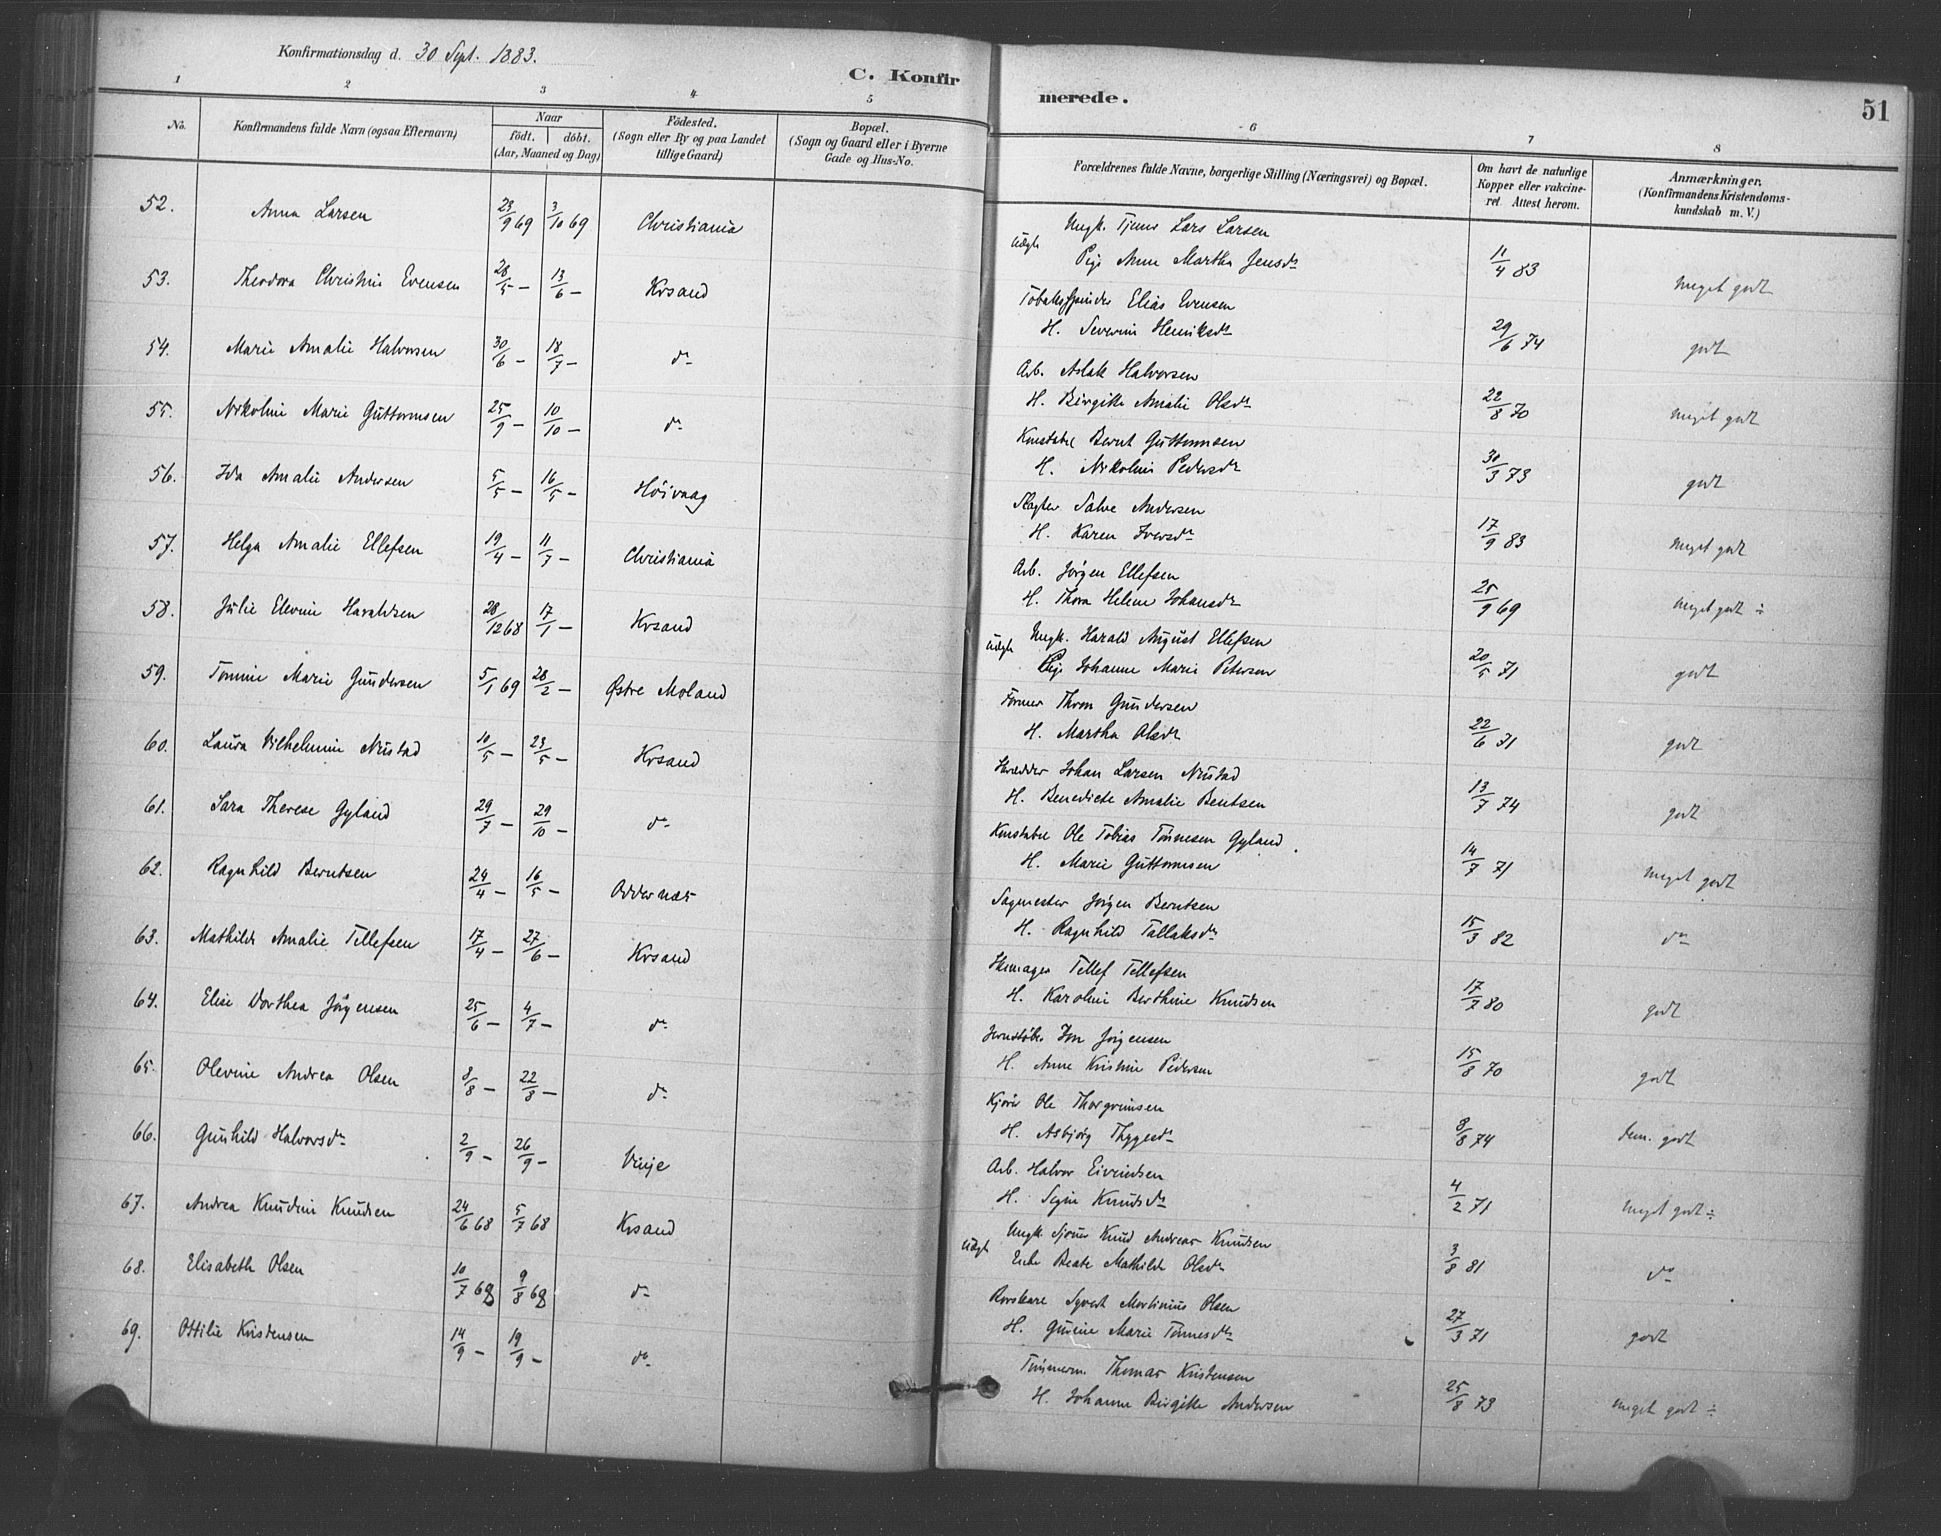 Konfirmationsdag d. 30 Sept. 1883.
C. Konfir
1 2 3 4 5
No.
Konfirmandens fulde Navn (ogsaa Efternavn)
Naar
födt. döbt.
(Aar, Maaned og Dag)
Födested.
(Sogn eller By og paa Landet
tillige Gaard)
Bopæl.
(Sogn og Gaard eller i Byerne
Gade og Hus-No.
52. Anna Larsen 23/9 69 3/10 69 Christiania
53. Theodora Christine Evensen 28/5 — 13/6 — Krsand
54. Marie Amalie Halvorsen 30/6 — 18/7 — do
55. Nikoline Marie Guttormsen 25/9 — 10/10 — do
56. Ida Amalie Andersen 5/5 — 16/5 — Höivaag
57. Helga Amalie Ellefsen 19/4 — 11/7 — Christiania
58. Julie Elevine Haraldsen 28/12 68 17/1 — Krsand
59. Tomine Marie Gundersen 5/1 69 28/2 — Østre Moland
60. Laura Vilhelmine Nustad 10/5 — 23/5 — Krsand
61. Sara Therese Gyland 29/7 — 29/10 — do
62. Ragnhild Berntsen 24/4 — 16/5 — Oddernæs
63. Mathilde Amalie Tellefsen 17/4 — 27/6 — Krsand
64. Elise Dorthea Jörgensen 25/6 — 4/7 — do
65. Olevine Andrea Olsen 8/8 — 22/8 — do
66. Gunhild Halvorsdr 2/9 — 26/9 — Vinje
67. Andrea Knudine Knudsen 24/6 68 5/7 68 Krsand
68. Elisabeth Olsen 10/7 69 9/8 69 do
69. Ottilie Kristensen 14/9 — 19/9 — do
merede.
51
6 7 8
Forældrenes fulde Navne, borgerlige Stilling (Næringsvei) og Bopæl.
Om havt de naturlige
Kopper eller vakcine-
ret Attest herom.
Anmærkninger.
(Konfirmandens Kristendoms-
kundskab m. V.)
Ungk. Tjener Lars Larsen
Uægte Pige Anne Martha Jensdr 11/4 83 meget godt
Tobaksspinder Elias Evensen
H. Severine Henriksdr 29/6 74 godt
Arb. Aslak Halvorsen
H. Birgitte Amalie Olsdr 22/8 70 meget godt
Konstabel Bernt Guttormsen
H. Nikoline Pedersdr 30/3 73 godt
Slagter Salve Andersen
H. Karen Iversdr 17/9 83 meget godt
Arb. Jörgen Ellefsen
H. Thora Helene Johansdr 25/9 69 meget godt ÷
Uægte Ungk. Harald August Ellefsen
Pige Johanne Marie Petersen 20/5 71 godt
Former Thron Gundersen
H. Martha Olsdr 22/6 71 godt
Skrædder Johan Larsen Nustad
H. Benedicte Amalie Bentsen 13/7 74 godt
Konstabel Ole Tobias Tönnesen Gyland
H. Marie Guttormsen 14/7 71 meget godt
Sagmester Jörgen Berntsen
H. Ragnhild Tallaksdr 15/3 82 do
Skomager Tellef Tellefsen
H. Karoline Berthine Knudsen 17/7 80 godt
Jernstöber Jon Jörgensen
H. Anne Kristine Pedersen 15/8 70 godt
Ole Thorgrimsen
H. Asbjörg Thygesdr 8/8 74 tem. godt
Arb. Halvor Eivindsen
H. Signe Knudsdr 4/2 71 meget godt ÷
Uægte Ungk. Sjöm Knud Andreas Knudsen
Enke Beate Mathilde Olsdr 3/8 81 do
Rorskare Syvert Mortinius Olsen
H. Gurine Marie Tönnesdr 27/3 71 godt
Tömmerm. Thomas Kristensen
H. Johanne Birgitte Andersen 25/8 73 meget godt ÷